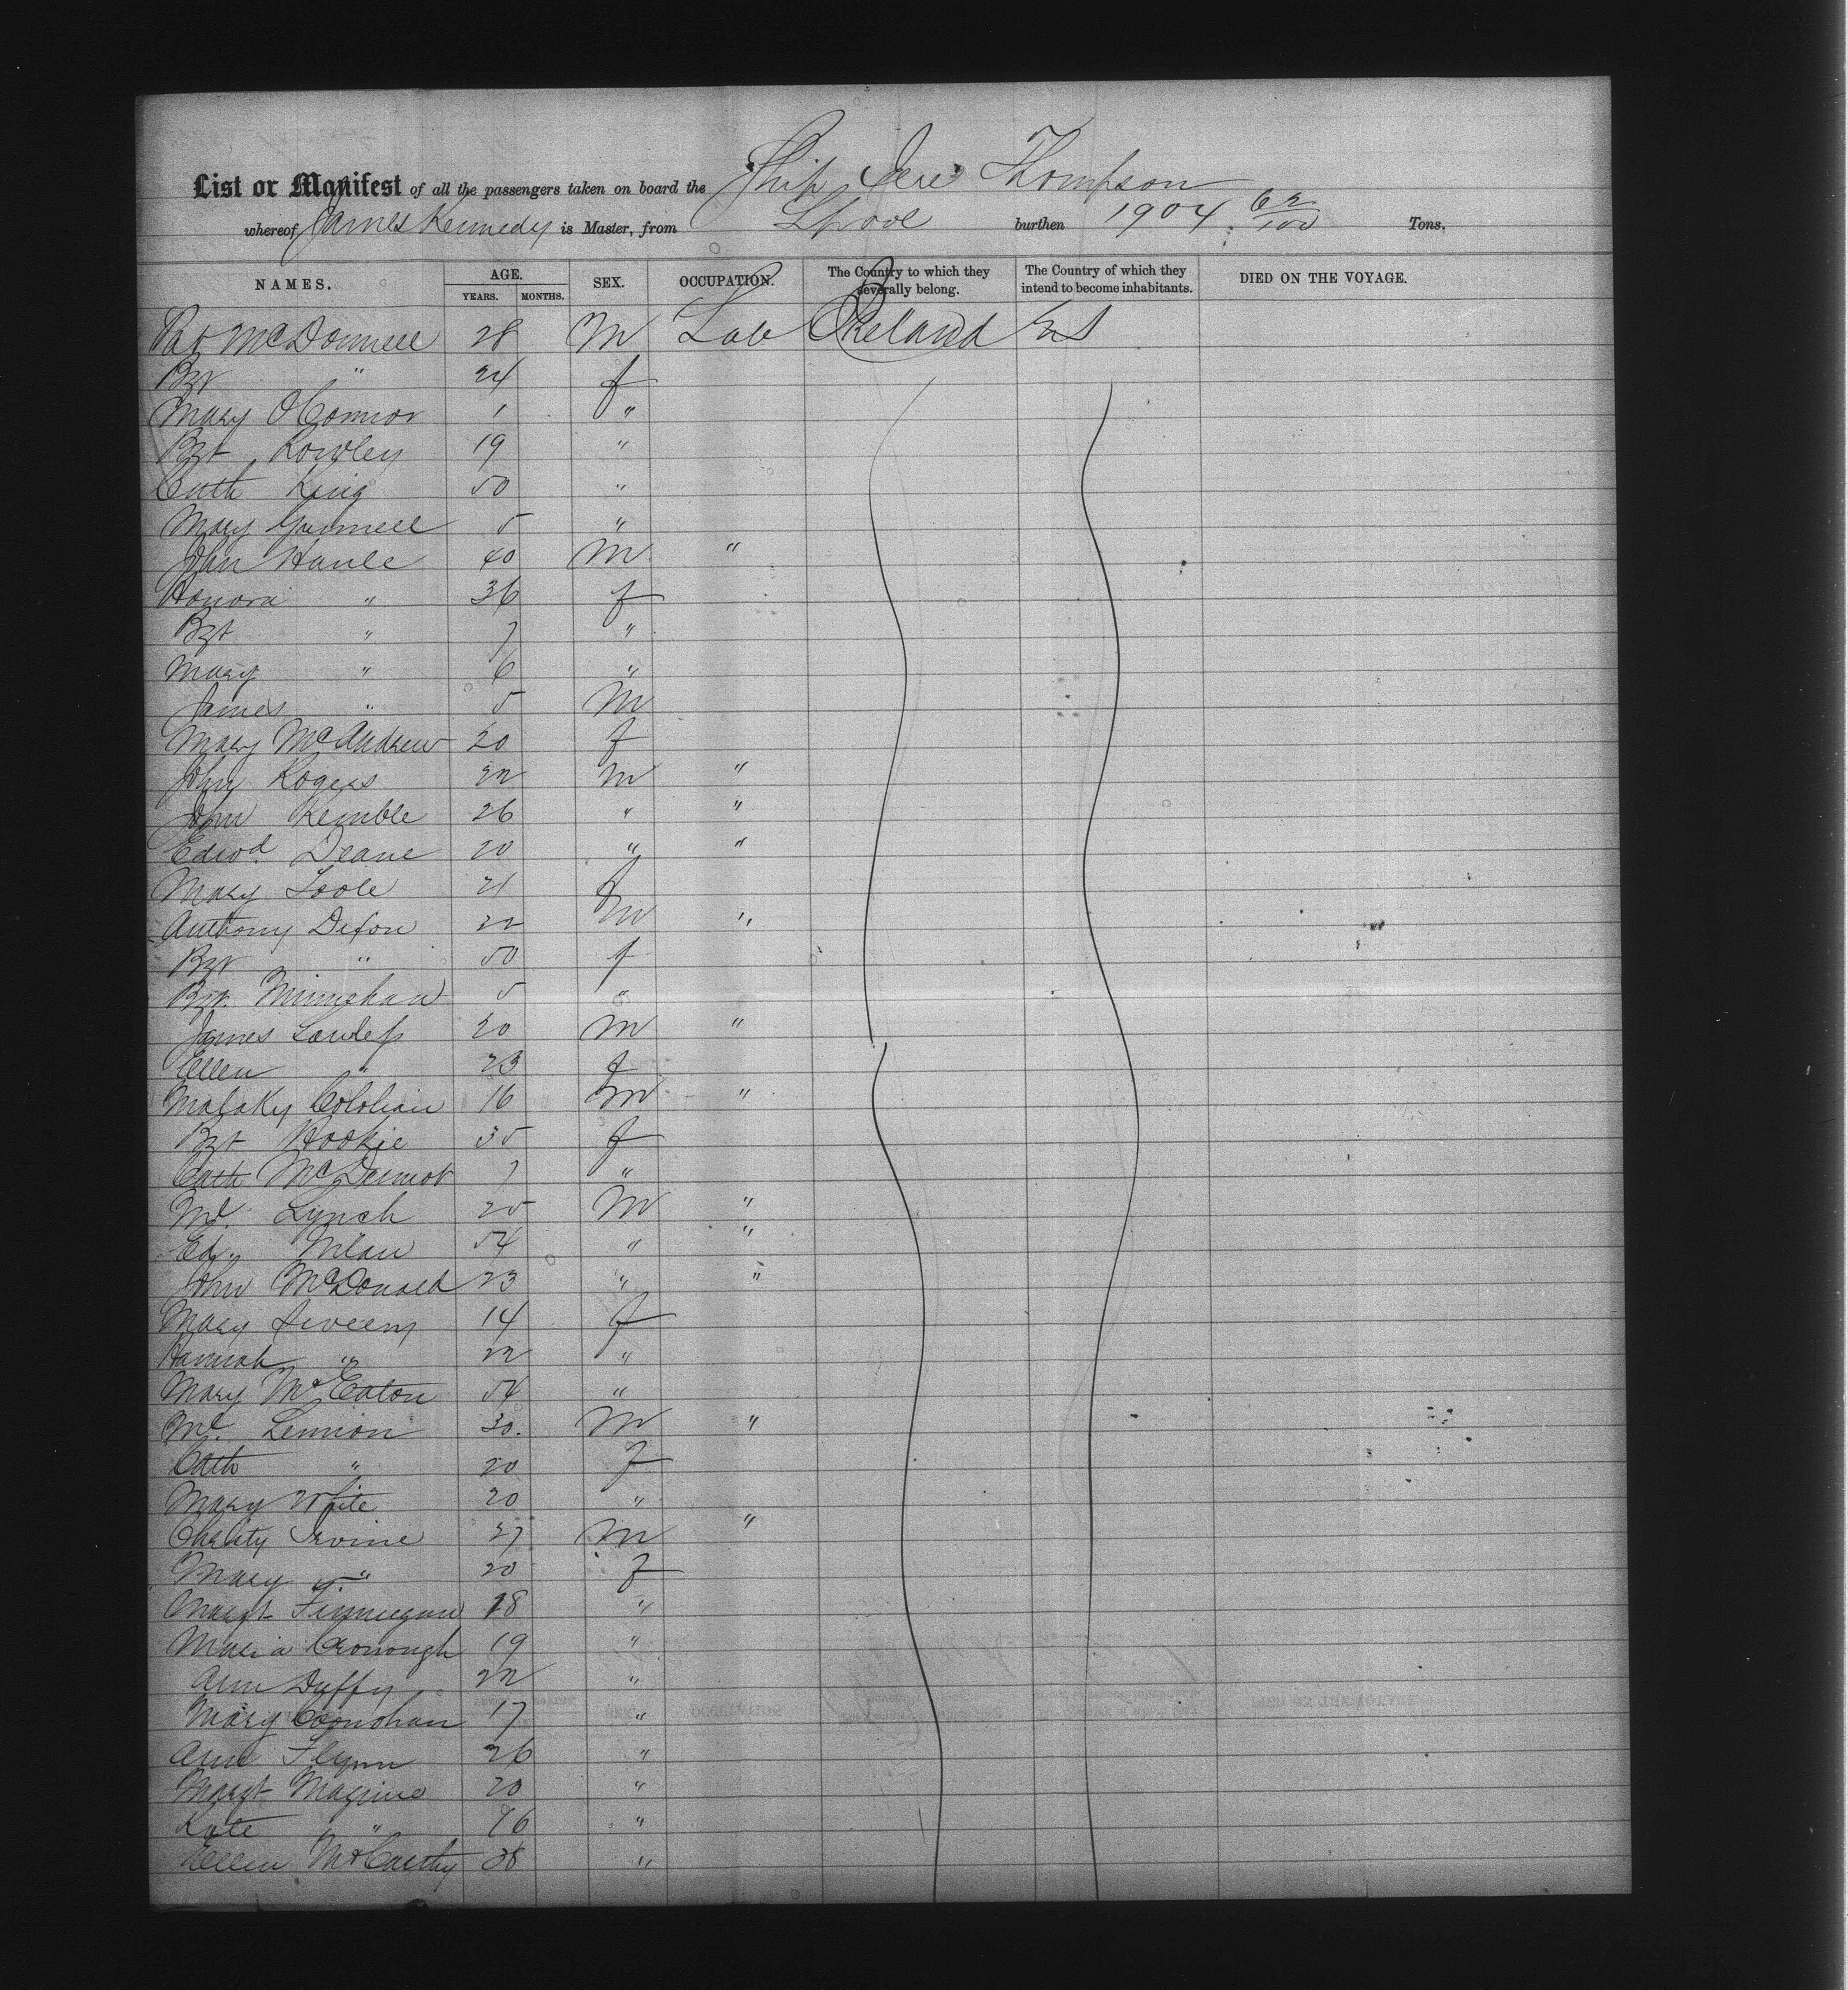 Ship Jere Thompson
List or Manifest of all the passengers taken on board the
whereof James Kennedy is Master, from Lpool burthen 1904 62/100 Tons.
NAMES. AGE. YEARS. MONTHS. SEX. OCCUPATION. The Country to which they severally belong. The Country of which they intend to become inhabitants. DIED ON THE VOYAGE.
Pat McDonnell 28 M Lab Ireland US
Bgt " 24 f
Mary O'Connor 1 "
Bgt Rowley 19 "
Cath King 50 "
Mary 5 "
John 40 M "
Honora " 36 f
Bgt " 7 "
Mary " 6 "
James " 5 M
Mary McAndrew 20 f
John Rogers 22 M "
John Kemble 26 " "
Edwd Deane 20 " "
Mary Toole 21 f
Anthony 22 M "
Bgt " 50 f
Bgt. 5 "
James Lawless 20 M "
Ellen " 23 f
Malaky 16 M "
Bgt 35 f
Cath McDermot 7 "
Ml. Lynch 25 M "
Ed. 54 " "
John McDonald 23 " "
Mary 14 f
Hannah " 22 "
Mary 54 "
Ml. Lennion 30. M "
Cath " 20 f
Mary White 20 "
Christy Irvine 27 M "
Mary " 20 f
Margt Finnegan 18 "
Maria 19 "
Ann Duffy 22 "
Mary 17 "
Ann Flynn 26 "
Margt 20 "
Kate " 16 "
Ellen McCarthy 38 "